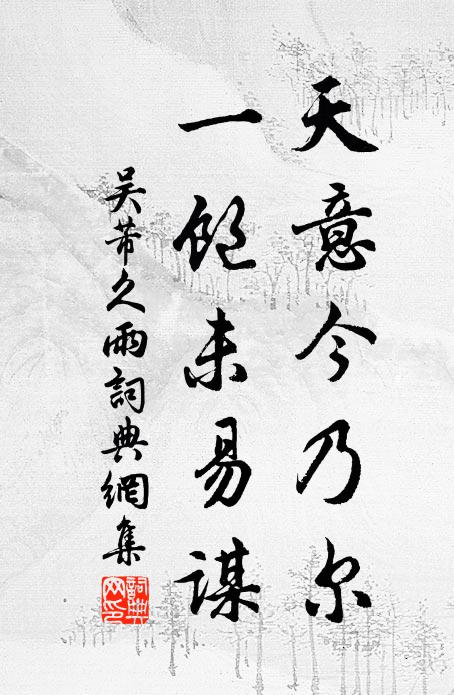 天意今乃尔
一饱未易謀
吴芾久雨詞典網集
詞典網印